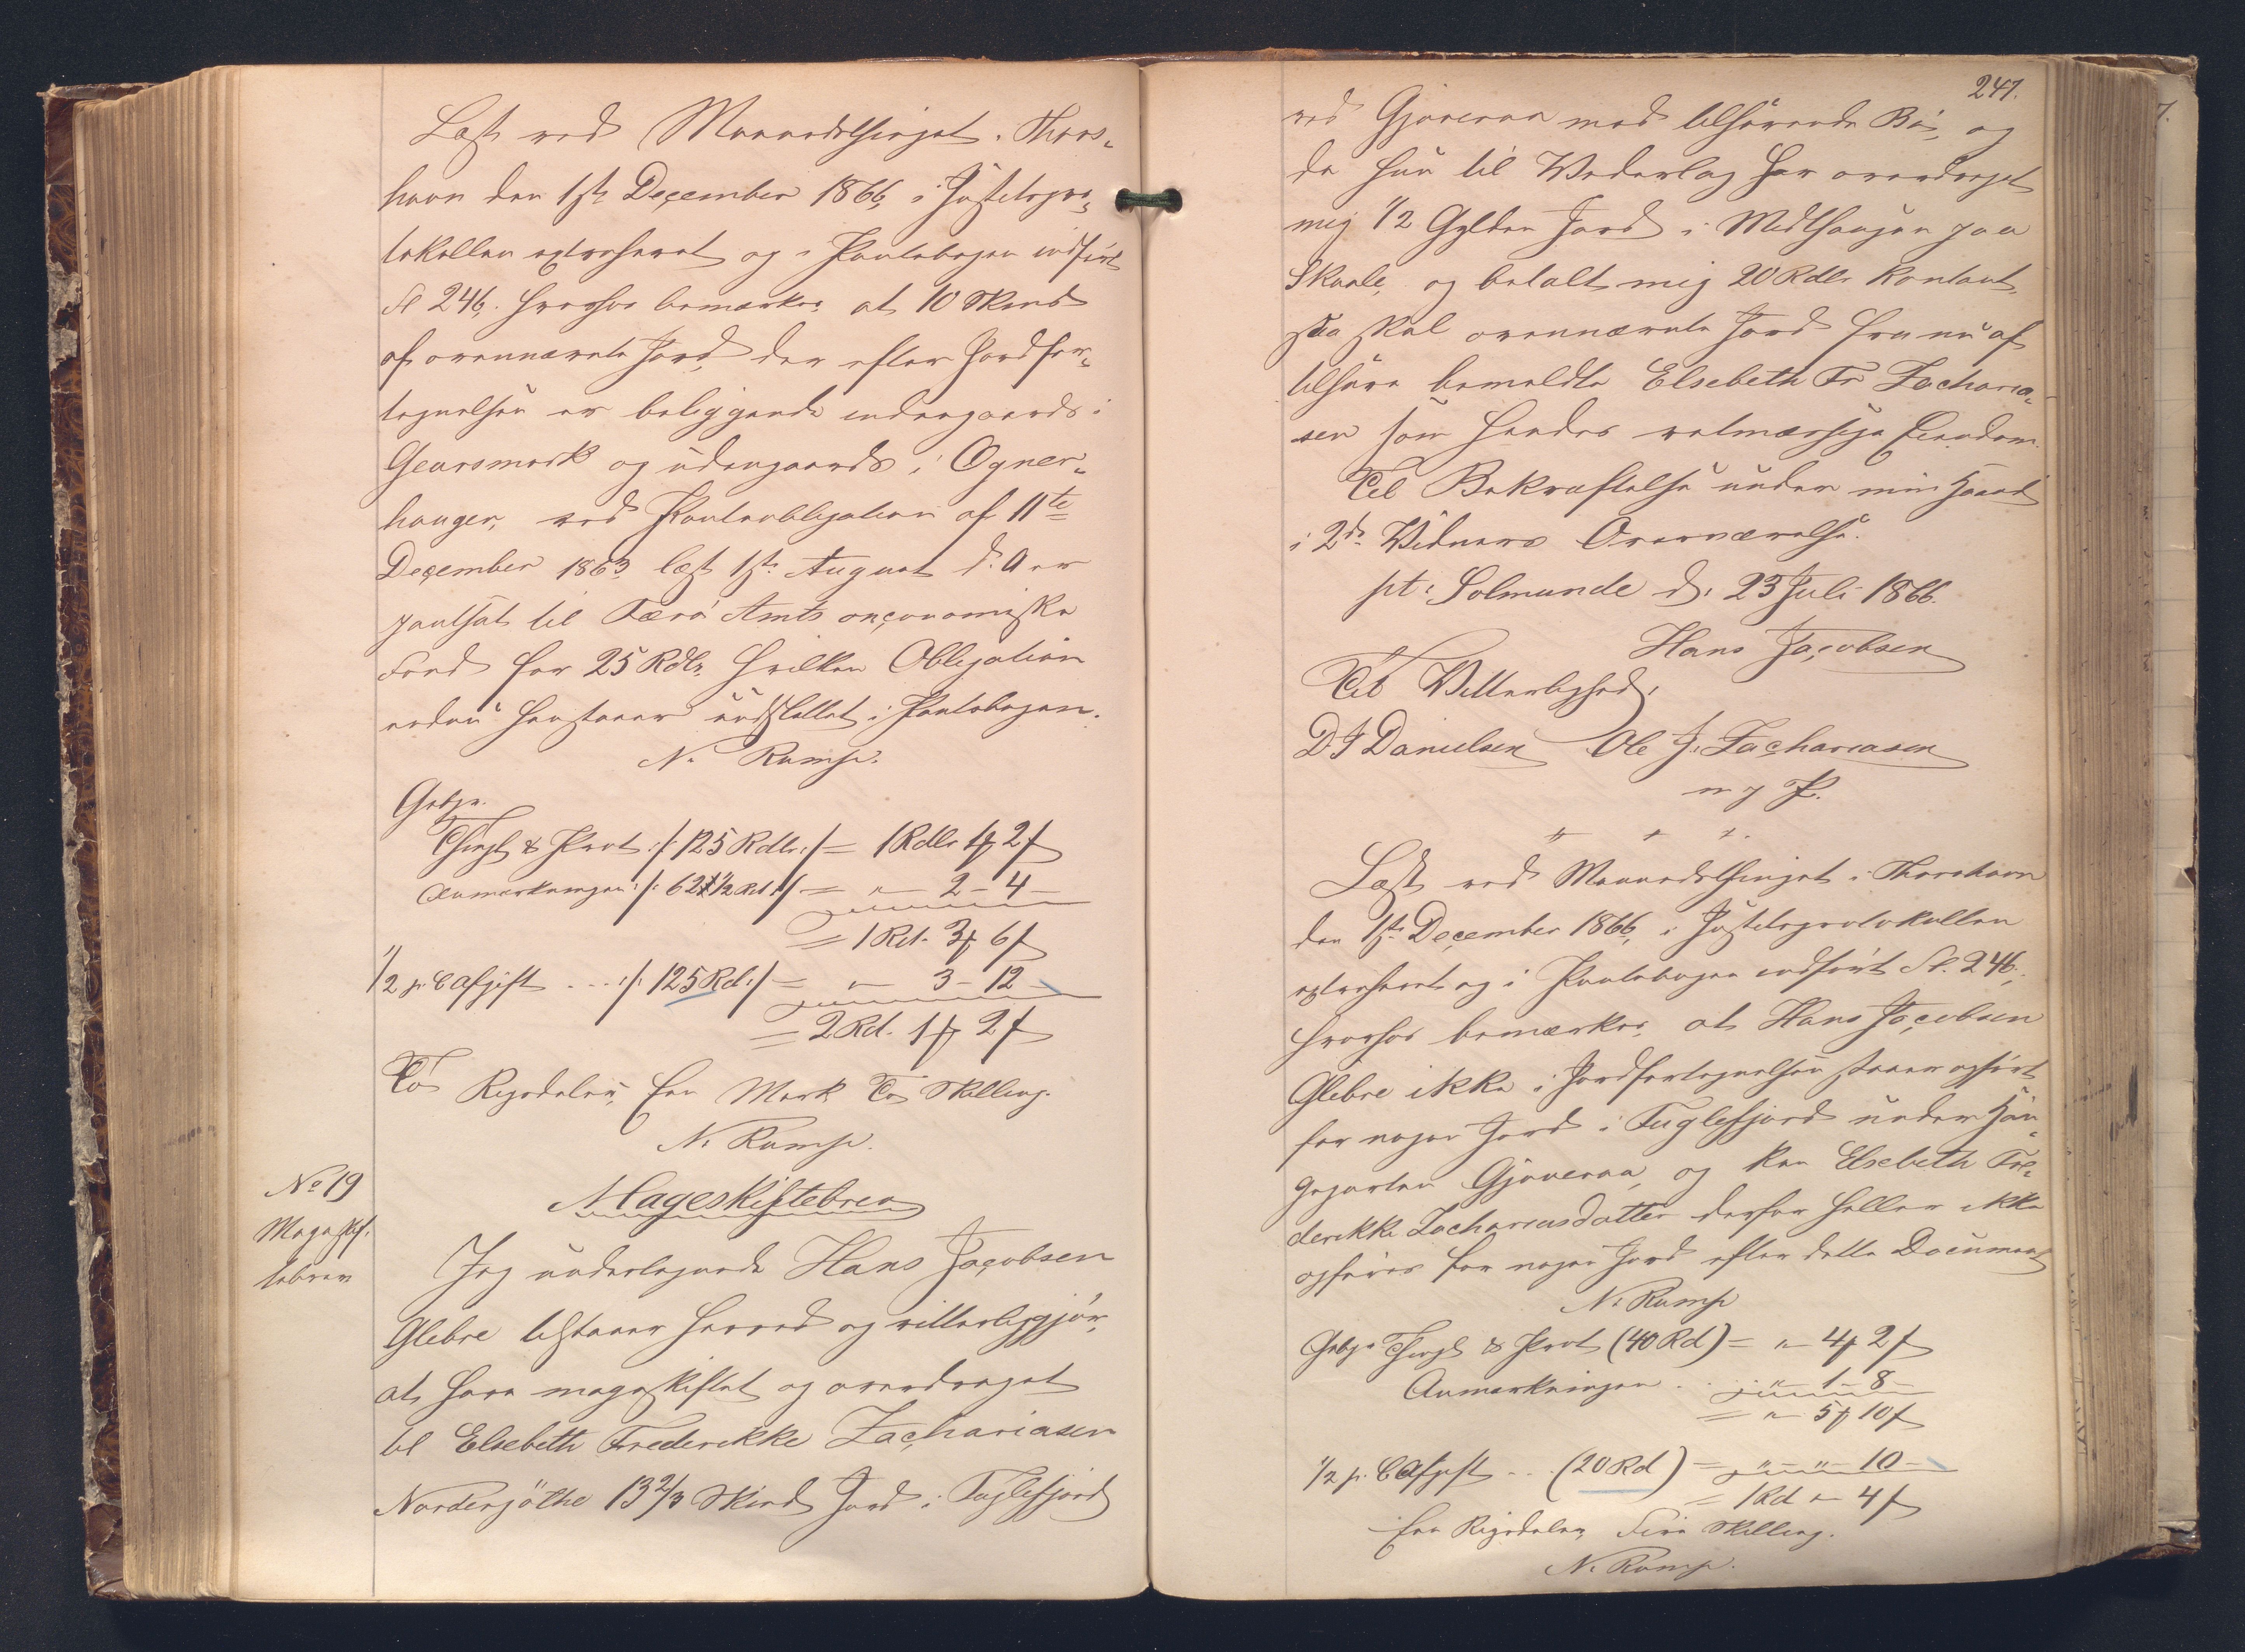 Læst ved Maanedsthinget i Thors-
havn den 1ste December 1866, i Justitspro-
tokollen extraheret og i Pantebogen indført
Fl 246. hvorhos bemærkes, at 10 Skind
af ovennævnte Jord, der efter Jordfor-
tegnelsen er beliggende indengaards i
Gearsmork og udengaards i Ogner-
hauger, ved Pantobligation af 11te
December 1863, læst 1ste August d. A er
pantsat til Færø Amts oeconomiske
Fond for 25 Rdlr, hvilken Obligation
endnu henstaaer uudslettet i Pantebogen.
N. Rump.
Gebyr.
Thingl & Prot :/: 125 Rdlr :/: = 1 Rdlr 1 ₥ 2 ß
Anmærkningen :/: 62 1/2 Rd :/: = " — 2 — 4 —
= 1 Rd. 3 ₥ 6 ß
1/2 p. C Afgift ... :/: 125 Rd :/: = " — 3 — 12 —
= 2 Rd. 1 ₥ 2 ß
To Rigsdaler, Een Mark To Skilling.
N. Rump.
No 19
Mageskif-
tebrev
Mageskiftebrev
Jeg undertegnede Hans Jacobsen
Glebre tilstaaer herved og vitterliggjør,
at have mageskiftet og overdraget
til Elsebeth Frederikke Zachariasen
Nordergjøthe 13 2/3 Skind Jord i Fuglefjord
247.
ved Gjøveraa med tilhørende Bø, og
da hun til Vederlag har overdraget
mig 1/2 Gylden Jord i Midthaugen paa
Skaale, og betalt mig 20 Rdlr kontant,
saa skal ovennævnte Jord fra nu af
tilhøre bemeldte Elsebeth Fr Zacharia-
sen som hendes retmæssige Eiendom.
Til Bekræftelse under min Haand
i 2de Vidners Overværelse.
pt. Solmunde d. 23 Juli 1866.
Hans Jacobsen
Til Vitterlighed,
D J Danielsen Ole J. Zachariasen
m f P.
Læst ved Maanedsthinget i Thorshavn
den 1ste December 1866, i Justitsprotokollen
extraheret og i Pantebogen indført Fl. 246.,
hvorhos bemærkes, at Hans Jacobsen
Glebre ikke i Jordfortegnelsen staaer opført
for nogen Jord i Fuglefjord under
Gjøveraa, og kan Elsebeth Fre-
derikke Zachariasdatter derfor heller ikke
opføres for nogen Jord efter dette Document
N. Rump
Gebyr Thingl & Prot (40 Rd) = " — 4 ₥ 2 ß
Anmærkningen . . " — 1 — 8 —
= " — 5 ₥ 10 ß
1/2 p. C Afgift ... (20 Rd) = " — " — 10 —
= 1 Rd " — 4 ß
Een Rigsdaler, Fire Skilling.
N. Rump.